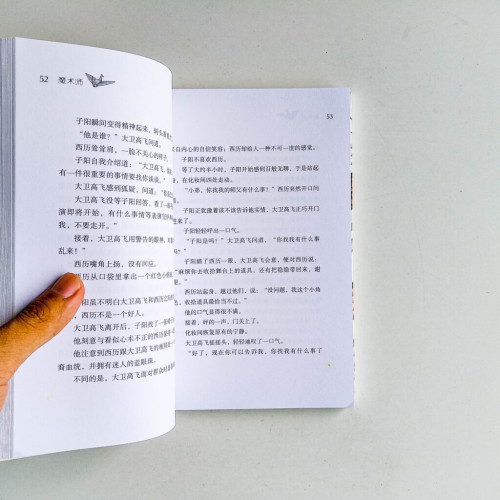 52 魔术师
子阳瞬间变得精神起来，转头看
“他是谁？”大卫高飞问道。
西历耸耸肩，一脸不关心的样子。
子阳自我介绍道：“大卫高飞，
有一件很重要的事情要找你谈谈。”
大卫高飞感到狐疑，问道：
大卫高飞没等子阳回答，看了一眼
演即将开始，有什么事情等表演完
我，不要走开。”
接着，大卫高飞用警告的眼神，
乱来！”
西历嘴角上扬，没有回应。
西历从口袋里拿出一个红色小
子阳虽不明白大卫高飞和西历
，西历不是一个好人。
大卫高飞离开后，子阳找了一张
他刻意与看似心术不正的西历保持
他注意到西历跟大卫高飞的
裔血统，并拥有迷人的蓝眼珠。
不同的是，大卫高飞面对群众时
53
自内心的自信笑容；西历却给人一种不可一世的感觉。
子阳不喜欢西历。
等了大约半小时，子阳开始感到百般无聊，于是站起
在化妆间四处走动。
“小弟，你找我的师父有什么事？”西历突然开口问
子阳正犹豫着该不该告诉他实情，大卫高飞正巧开门
子阳轻轻呼出一口气。
“子阳是吗？”大卫高飞问道，“你找我有什么事
子阳瞄了西历一眼，大卫高飞会意，便对西历说：
麻烦你去收拾舞台上的道具，还有把隐隐带回来，谢
西历站起身，越过他们，说：“没问题，我这个小角
收拾道具最恰当不过。”
他的口气显得很不屑。
接着，砰的一声，门关上了。
化妆间恢复原有的宁静。
大卫高飞摇摇头，轻轻地叹了一口气。
“好了，现在你可以告诉我，你找我有什么事了